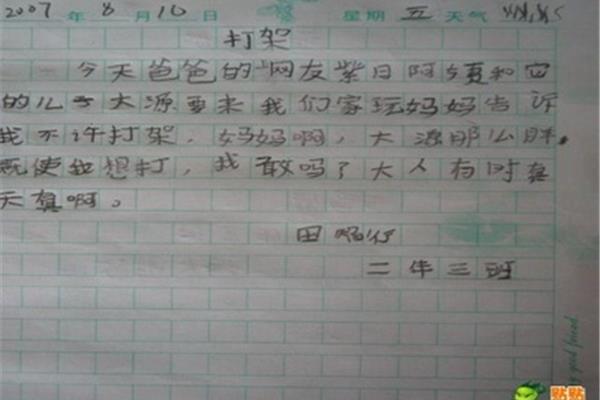 2007年8月10日 星期五 天气
打架
今天爸爸的网友紫日阿姨和它
的儿子大源要来我们家玩妈妈告诉
我不许打架，妈妈啊，大源那么胖，
既使我想打，我敢吗？大人有时真
天真啊。
田
二年三班
good friend
贴贴